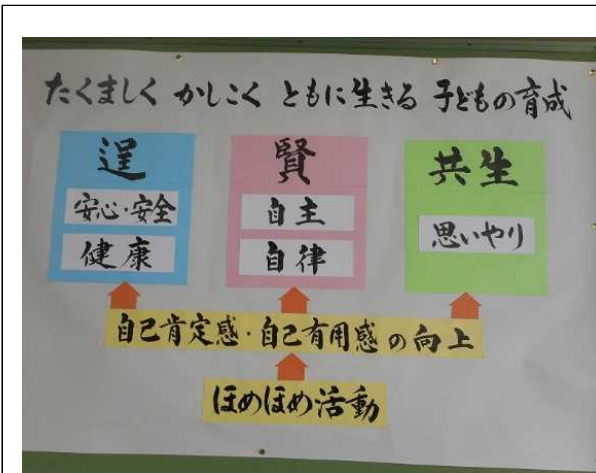 たくましく かしこく ともに生きる 子どもの育成
逞
安心・安全
健康
賢
自主
自律
共生
思いやり
自己肯定感・自己有用感の向上
ほめほめ活動